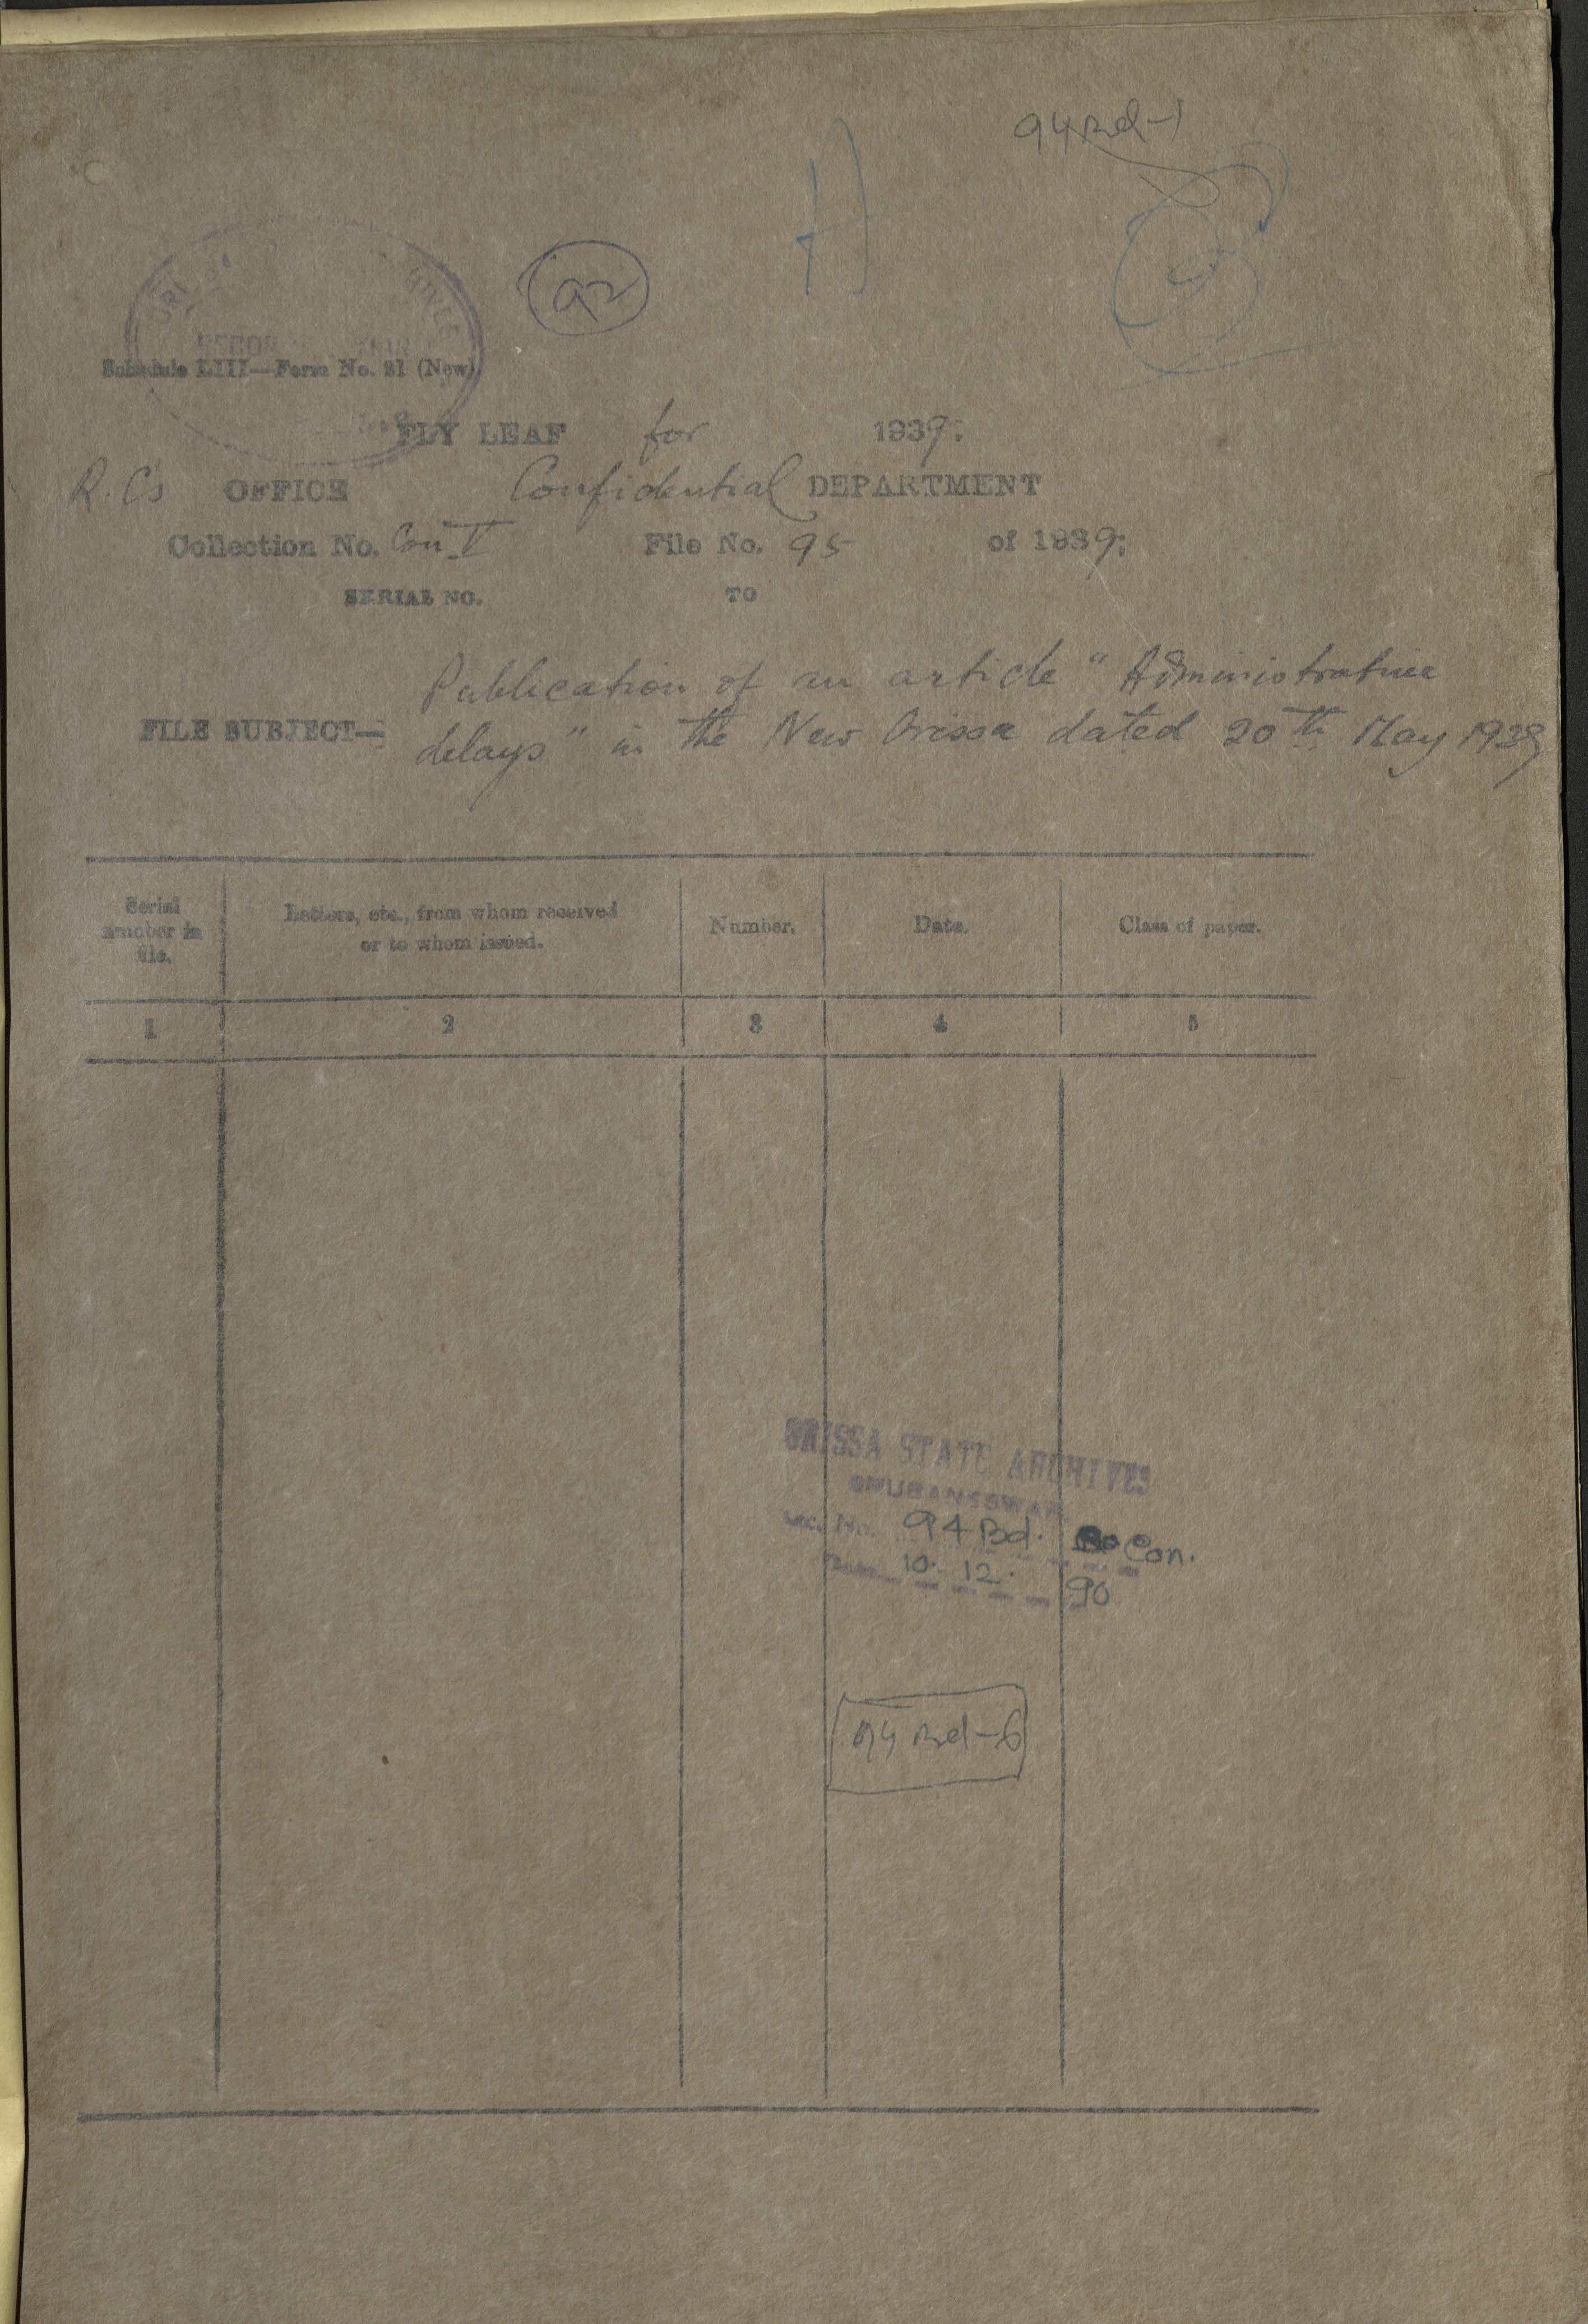 94 Bd-1
A
92
Schedule LIII—Form No. 21 (New)
FLY LEAF for 1939.
R.C's OFFICE Confidential DEPARTMENT
Collection No. Con V File No. 95 of 1939.
SERIAL NO. TO
Publication of an article "Administrative
FILE SUBJECT— delays" in the New Orissa dated 20th May 1939
Serial number in file. Letters, etc., from whom received or to whom issued. Number. Date. Class of paper.
1 2 3 4 5
ORISSA STATE ARCHIVES
BHUBANESWAR
Acc. No. 94 Bd. Con.
Date 10. 12. 90
94 Bd-6